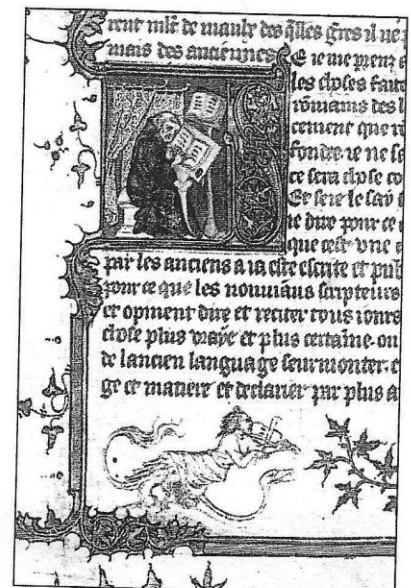 rent mlt de maulx des qlles gres il ne
mais des anciennes
E ie me prenz a
les choses faite
romains des l
cement que ro
fondee ie ne sa
ce sera chose co
Et se ie le sav
ie dire pour ce
que cest vne c
par les anciens a ia este escrite et pub
pour ce que les nouuiaus scripteurs
et opinent dire et reciter tous iours
chose plus vraye et plus certaine. ou
de lancien language seurmonter. e
ge et matiere et declairier par plus a